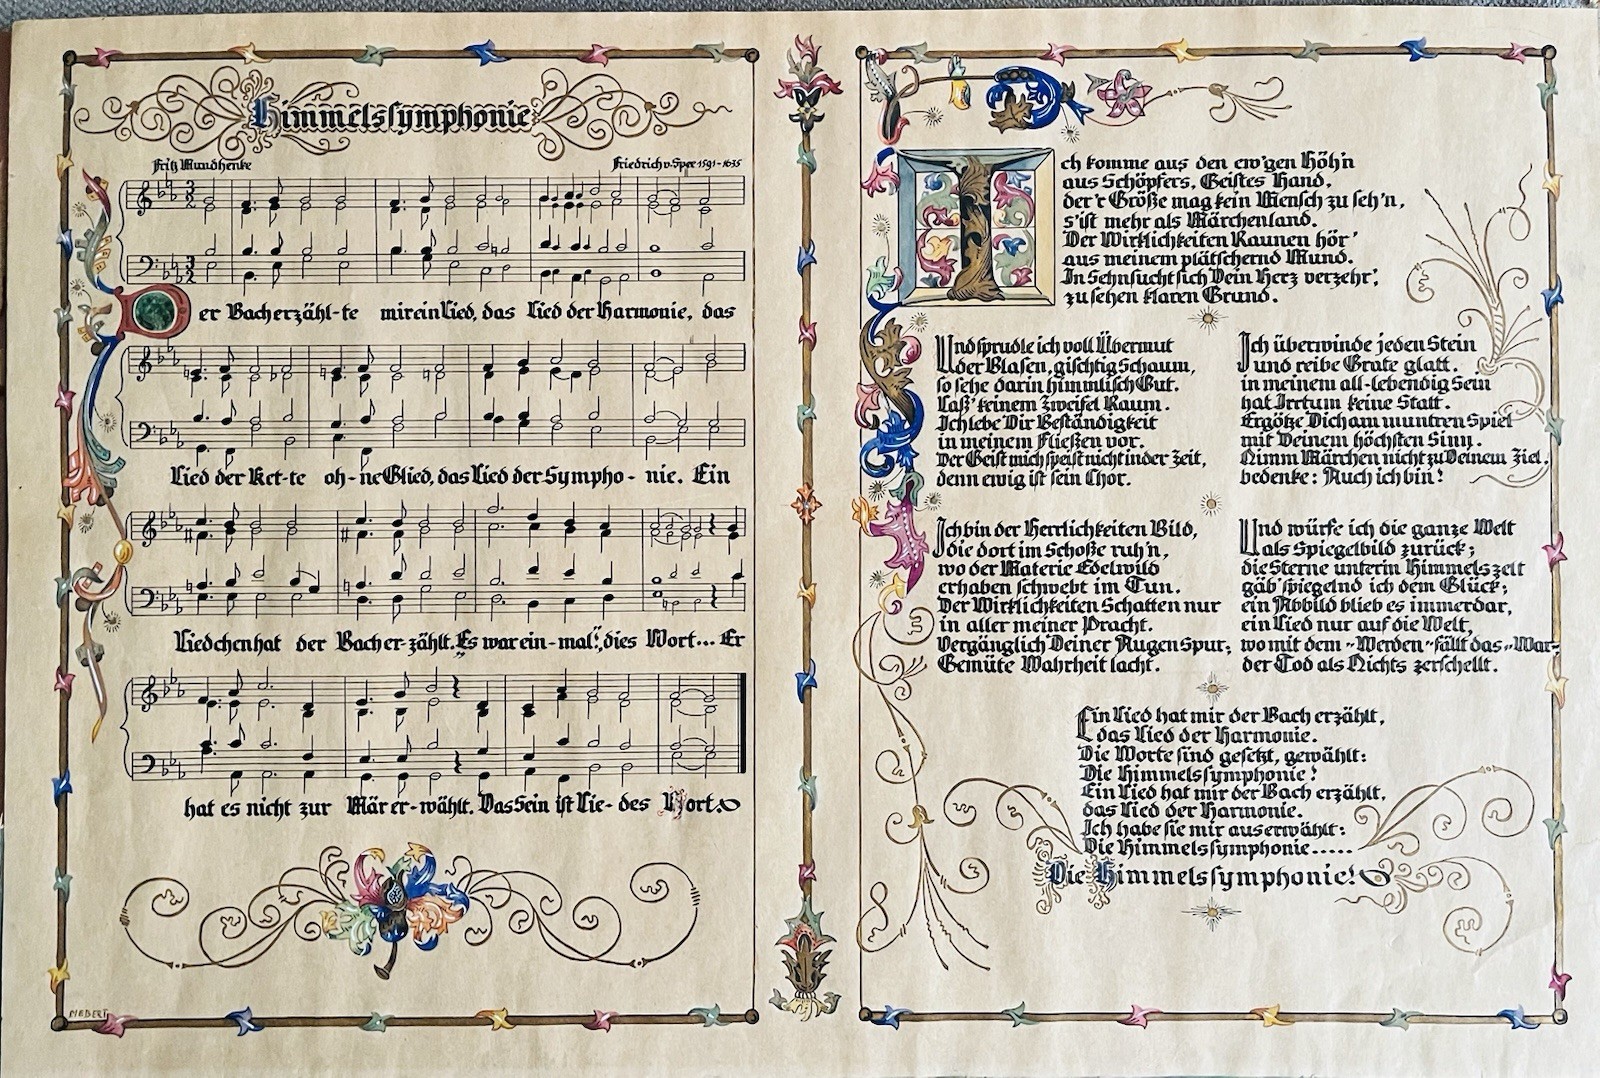 Himmelssymphonie
Fritz Mundhenke
Friedrich v. Spee 1591-1635
Der Bach erzähl-te mir ein Lied, das Lied der Harmonie, das
Lied der Ket-te oh-ne Glied, das Lied der Sympho-nie. Ein
Liedchen hat der Bach er-zählt. „Es war ein-mal“, dies Wort... Er
hat es nicht zur Mär er-wählt. Das Sein ist Lie-des Wort.
NEBERT
Ich komme aus den ew'gen Höh'n
aus Schöpfers, Geistes Hand,
der'r Größe mag kein Mensch zu seh'n,
s'ist mehr als Märchenland.
Der Wirklichkeiten Raunen hör'
aus meinem plätschernd Mund.
In Sehnsucht sich Dein Herz verzehr',
zu sehen klaren Grund.
Und sprudle ich voll Übermut
der Blasen, gischtig Schaum,
so sehe darin himmlisch Gut.
Laß' keinem Zweifel Raum.
Ich lebe Dir Beständigkeit
in meinem Fließen vor.
Der Geist mich speist nicht in der Zeit,
denn ewig ist sein Chor.
Ich überwinde jeden Stein
und reibe Grate glatt.
in meinem all-lebendig Sein
hat Irrtum keine Statt.
Ergötze Dich am muntren Spiel
mit Deinem höchsten Sinn.
Nimm Märchen nicht zu Deinem Ziel,
bedenke: Auch ich bin!
Ich bin der Herrlichkeiten Bild,
die dort im Schoße ruh'n,
wo der Materie Edelwild
erhaben schwebt im Tun.
Der Wirklichkeiten Schatten nur
in aller meiner Pracht.
Vergänglich Deiner Augen Spur,
Gemüte Wahrheit lacht.
Und würfe ich die ganze Welt
als Spiegelbild zurück;
die Sterne unterm Himmelszelt
gäb' spiegelnd ich dem Glück;
ein Abbild blieb es immerdar,
ein Lied nur auf die Welt,
wo mit dem „Werden“ fällt das „War“
der Tod als Nichts zerschellt.
Ein Lied hat mir der Bach erzählt,
das Lied der Harmonie.
Die Worte sind gesetzt, gewählt:
Die Himmelssymphonie!
Ein Lied hat mir der Bach erzählt,
das Lied der Harmonie.
Ich habe sie mir auserwählt:
Die Himmelssymphonie.....
Die Himmelssymphonie!